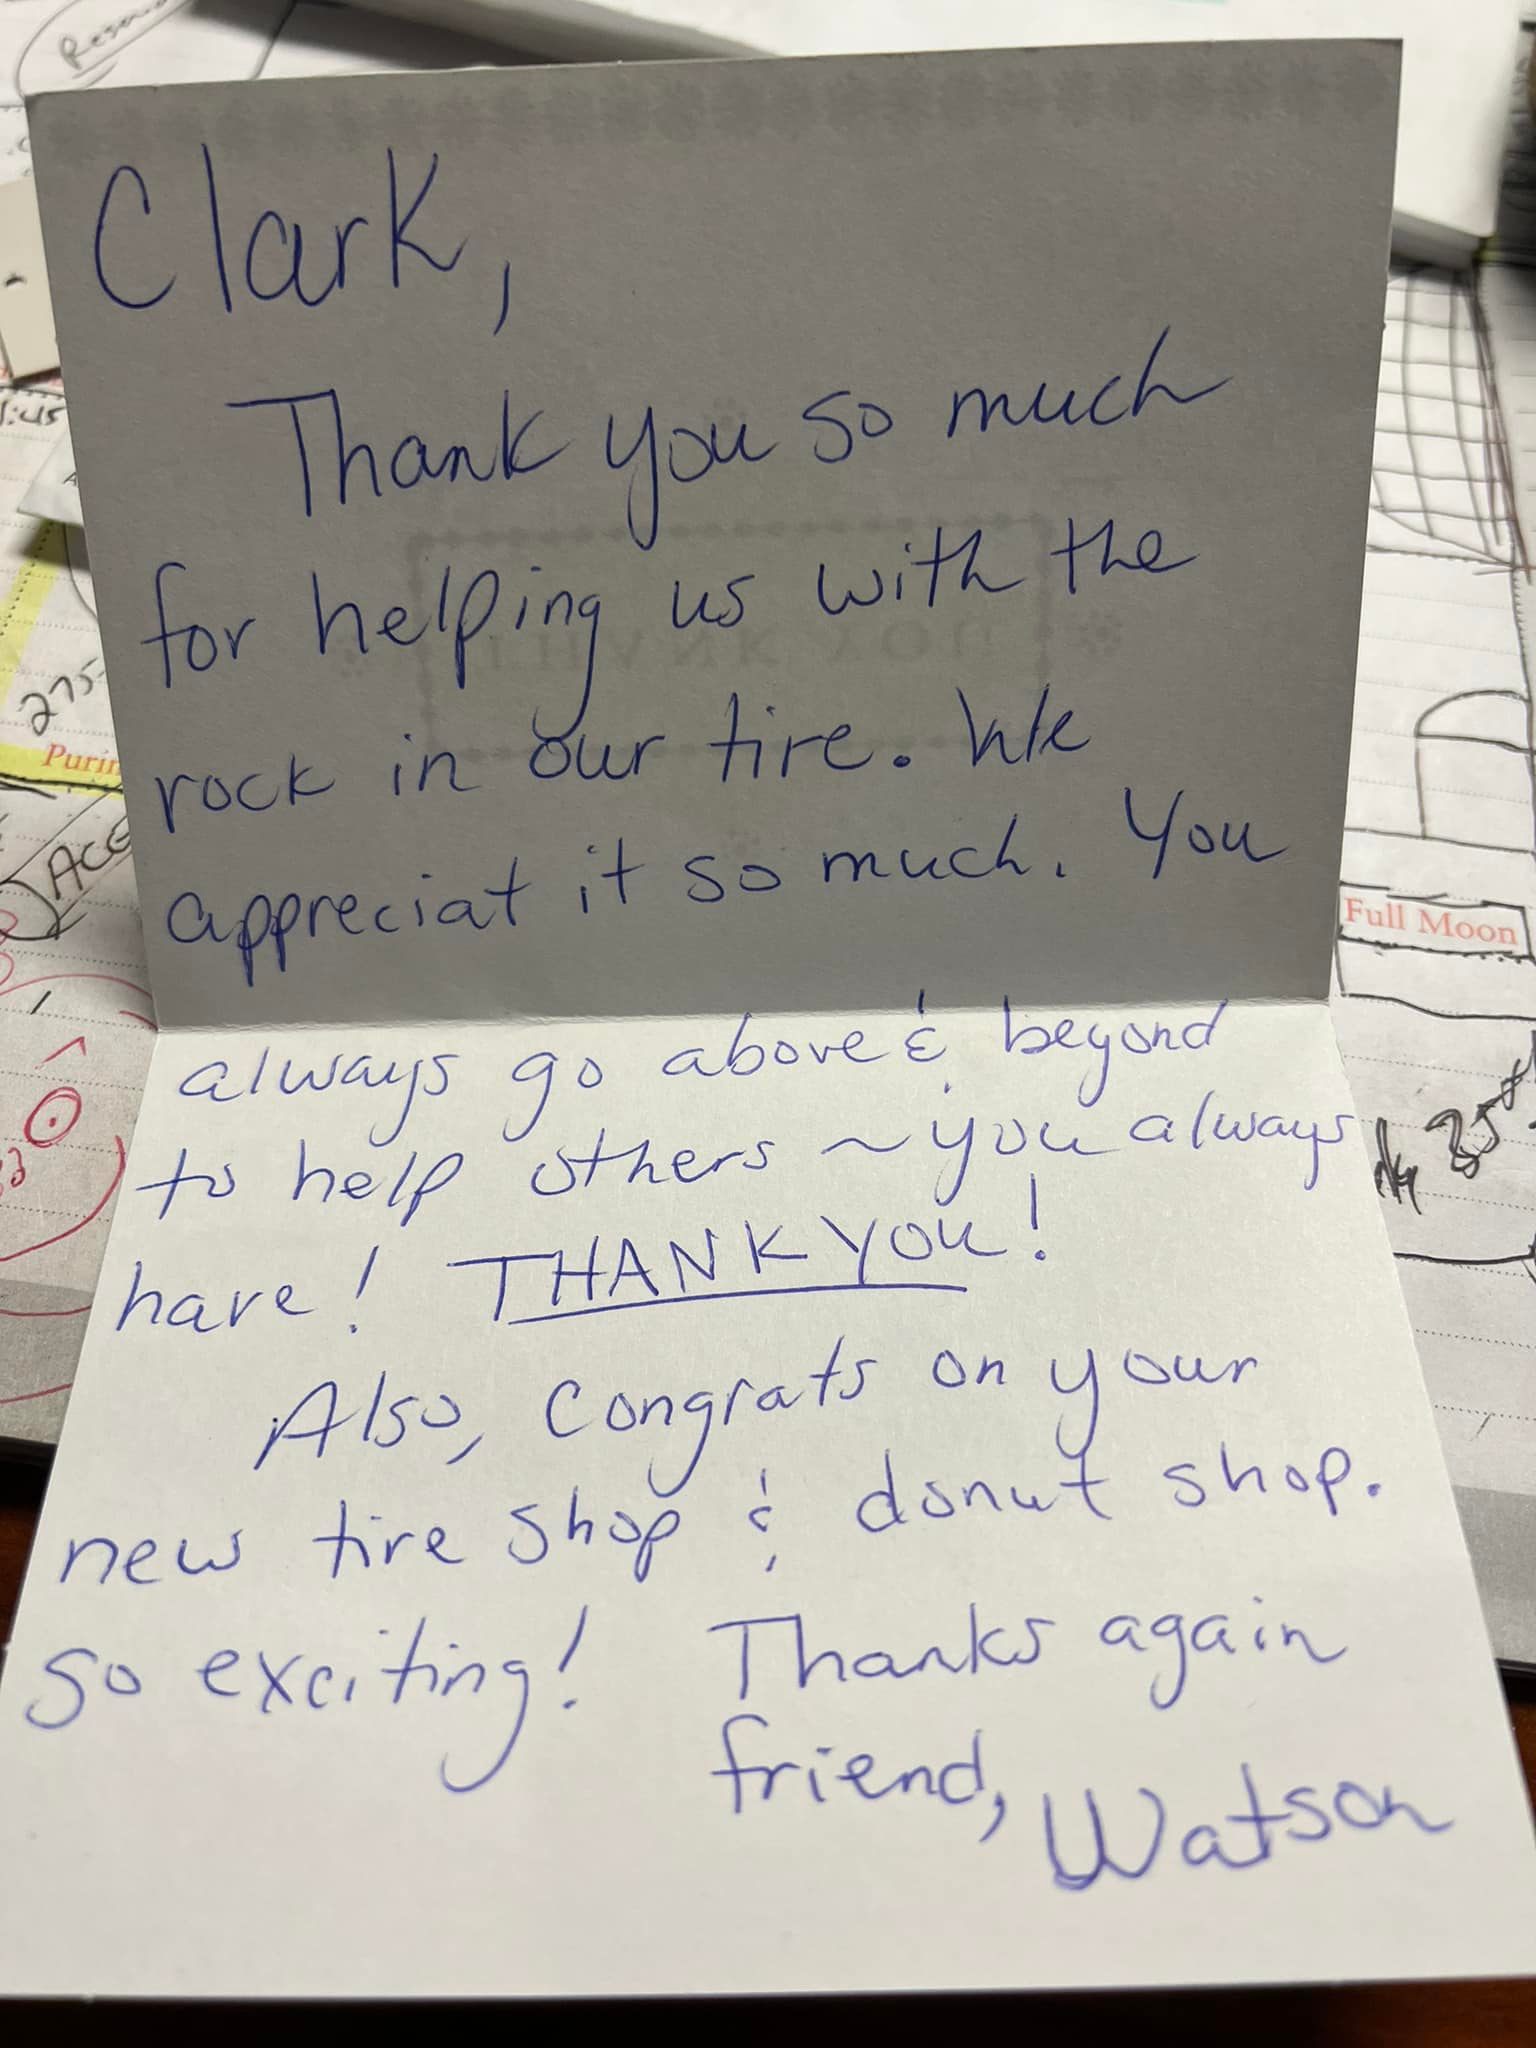 Clark,
Thank you so much
for helping us with the
rock in our tire. We
appreciat it so much. You
always go above & beyond
to help others ~ you always
have! THANK YOU!
Also, congrats on your
new tire shop & donut shop.
so exciting! Thanks again
friend, Watson
THANK YOU
1:45
275-
Purin
ACE
Full Moon